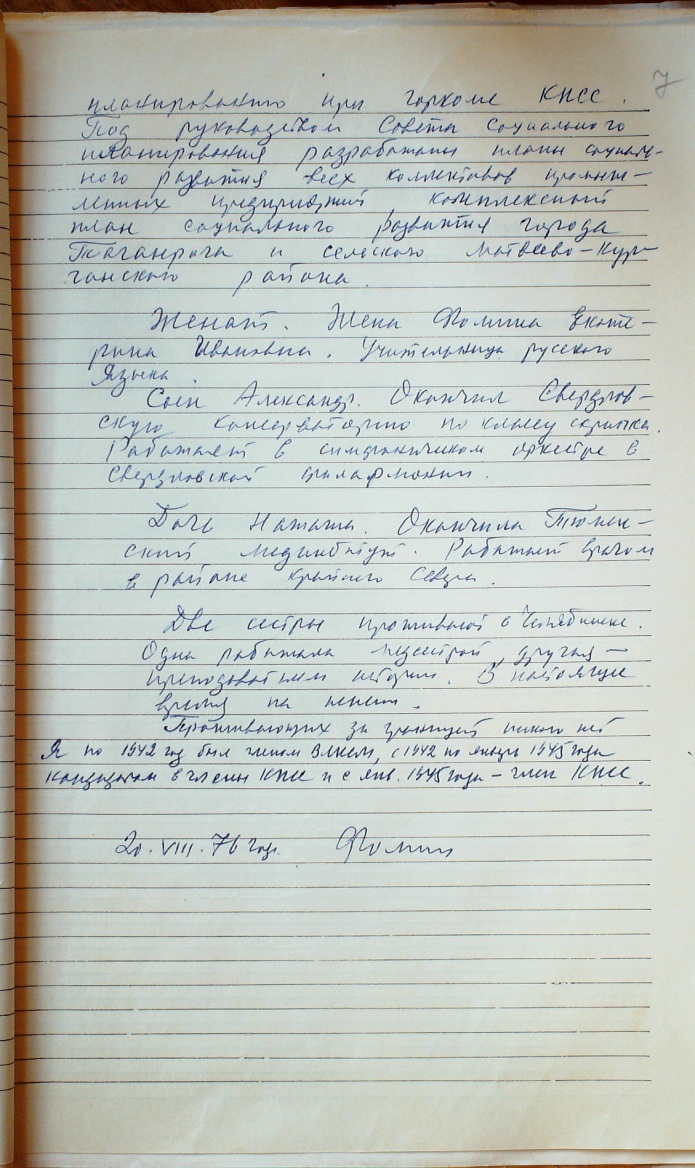 7
планирования при горкоме КПСС.
Под руководством Совета социального
планирования разработаны планы социаль-
ного развития всех коллективов промыш-
ленных предприятий комплексный
план социального развития города
Таганрога и сельского Матвеево-Кур-
ганского района.
Женат. Жена Фомина Екате-
рина Ивановна. Учительница русского
языка.
Сын Александр. Окончил Свердлов-
скую консерваторию по классу скрипка.
Работает в симфоническом оркестре в
Свердловской филармонии.
Дочь Наташа. Окончила Тюмен-
ский мединститут. Работает врачом
в районе Крайнего Севера.
Две сестры проживают в Челябинске.
Одна работала медсестрой, другая —
преподователем истории. В настоящее
время на пенсии.
Проживающих за границей никого нет
Я по 1942 год был членом ВЛКСМ, с 1942 по январь 1945 года
кандидатом в члены КПСС и с янв. 1945 года – член КПСС.
20.VIII.76 года Фомин